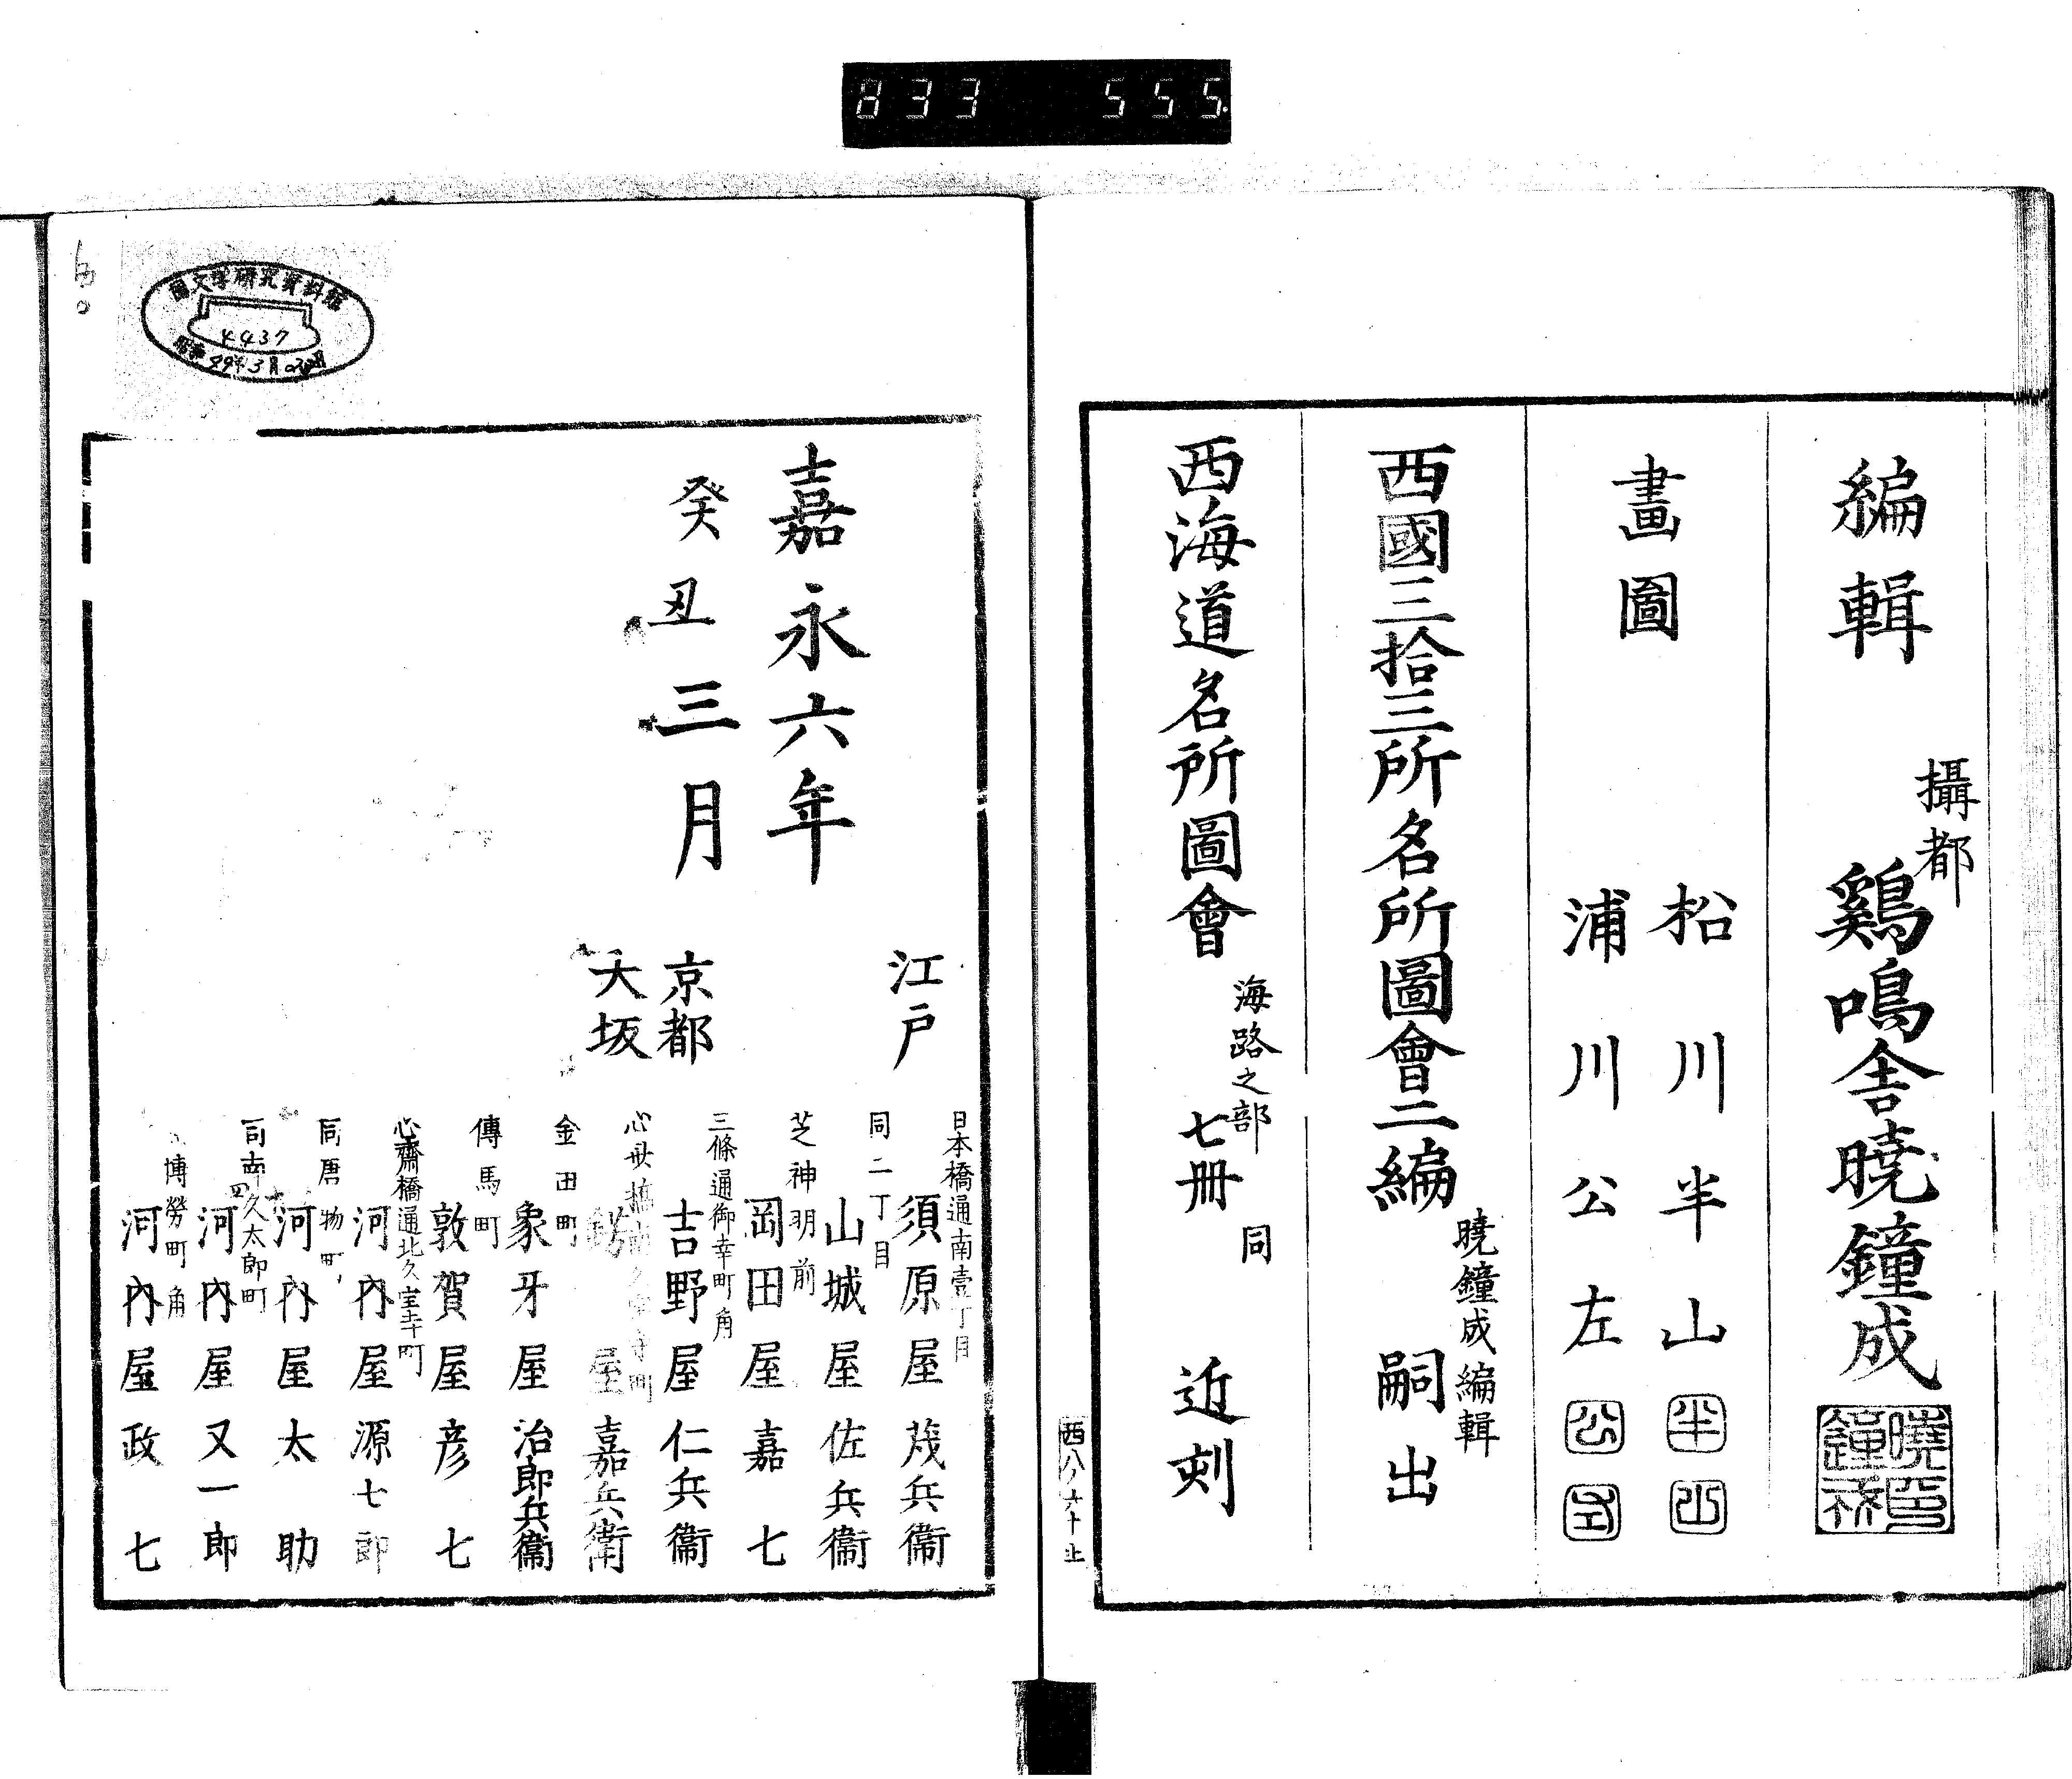 833 555
編輯
攝都
鷄鳴舎暁鐘成
暁鐘成印
畫圖
松川半山
半山
浦川公左
公左
西國三拾三所名所圖會二編
暁鐘成編輯
嗣出
西海道名所圖會
海路之部
七冊
同
近刻
西八ノ六十止
國文學研究資料館
4437
昭和49年3月
嘉永六年
癸丑三月
江戸
日本橋通南壹丁目
須原屋茂兵衞
同二丁目
山城屋佐兵衞
芝神明前
岡田屋嘉七
京都
三條通御幸町角
吉野屋仁兵衞
大坂
屋嘉兵衞
金田町
象牙屋治郎兵衞
傳馬町
敦賀屋彦七
心齋橋通北久宝寺町
河内屋源七郎
同唐物町
河内屋太助
同南久太郎町
河内屋又一郎
博勞町角
河内屋政七